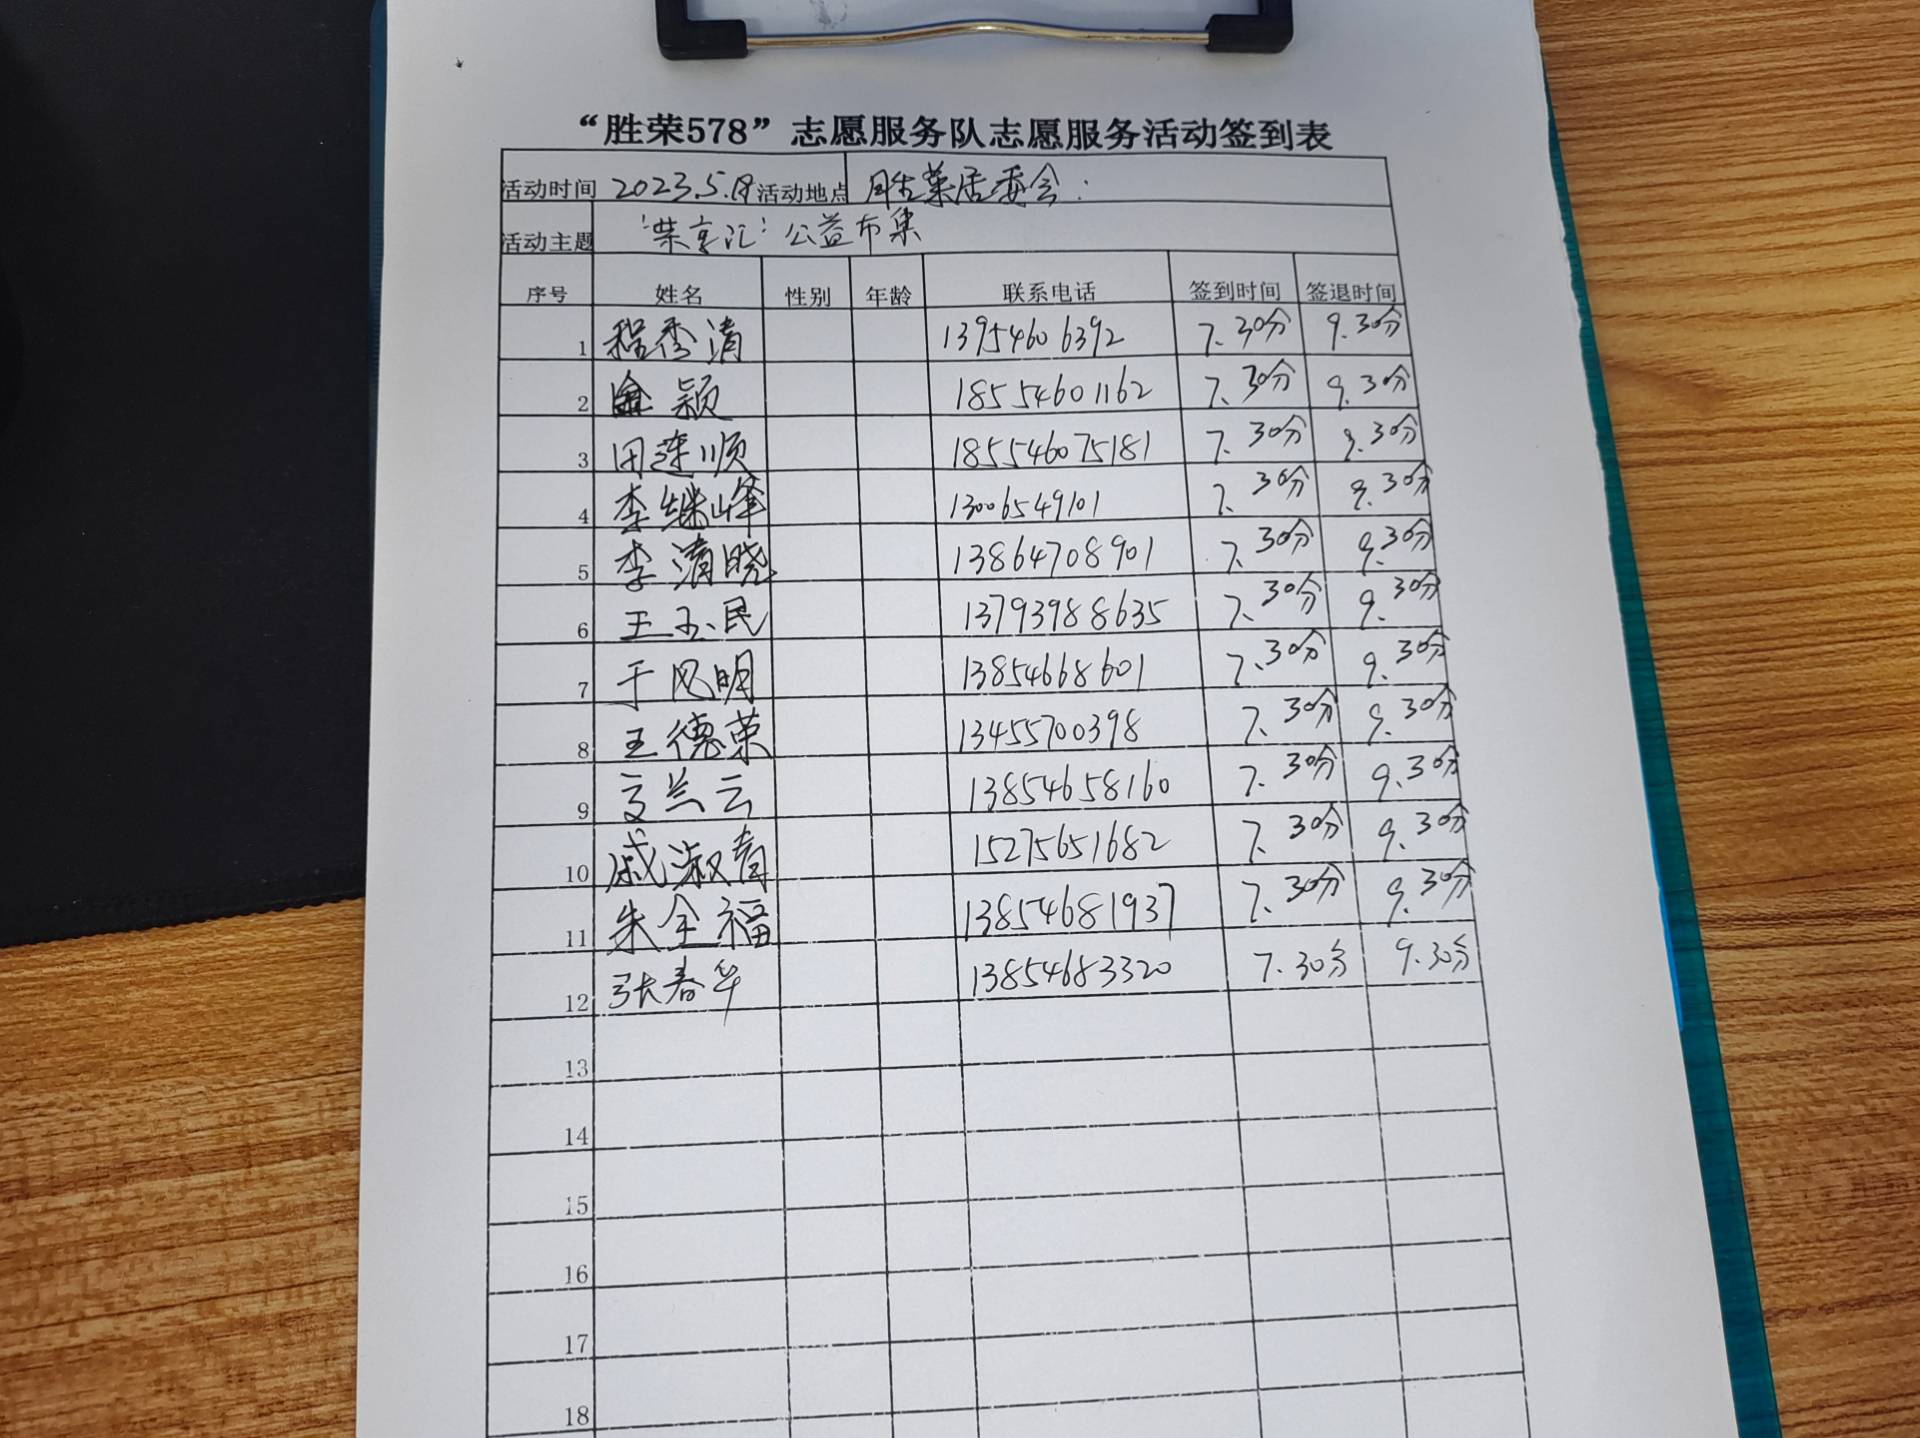 “胜荣578”志愿服务队志愿服务活动签到表
活动时间 2023.5.18 活动地点 胜荣居委会:
活动主题 '荣享汇' 公益市集
序号 姓名 性别 年龄 联系电话 签到时间 签退时间
1 程秀清 13954606392 7.30分 9.30分
2 颖 18554601162 7.30分 9.30分
3 田莲顺 185546075181 7.30分 9.30分
4 李继峰 13006549101 7.30分 9.30分
5 李清晓 13864708901 7.30分 9.30分
6 王玉民 13793988635 7.30分 9.30分
7 于凤明 13854668601 7.30分 9.30分
8 王德荣 13455700398 7.30分 9.30分
9 兰云 13854658160 7.30分 9.30分
10 戚淑青 15275651682 7.30分 9.30分
11 朱全福 13854681937 7.30分 9.30分
12 张春华 13854683320 7.30分 9.30分
13
14
15
16
17
18